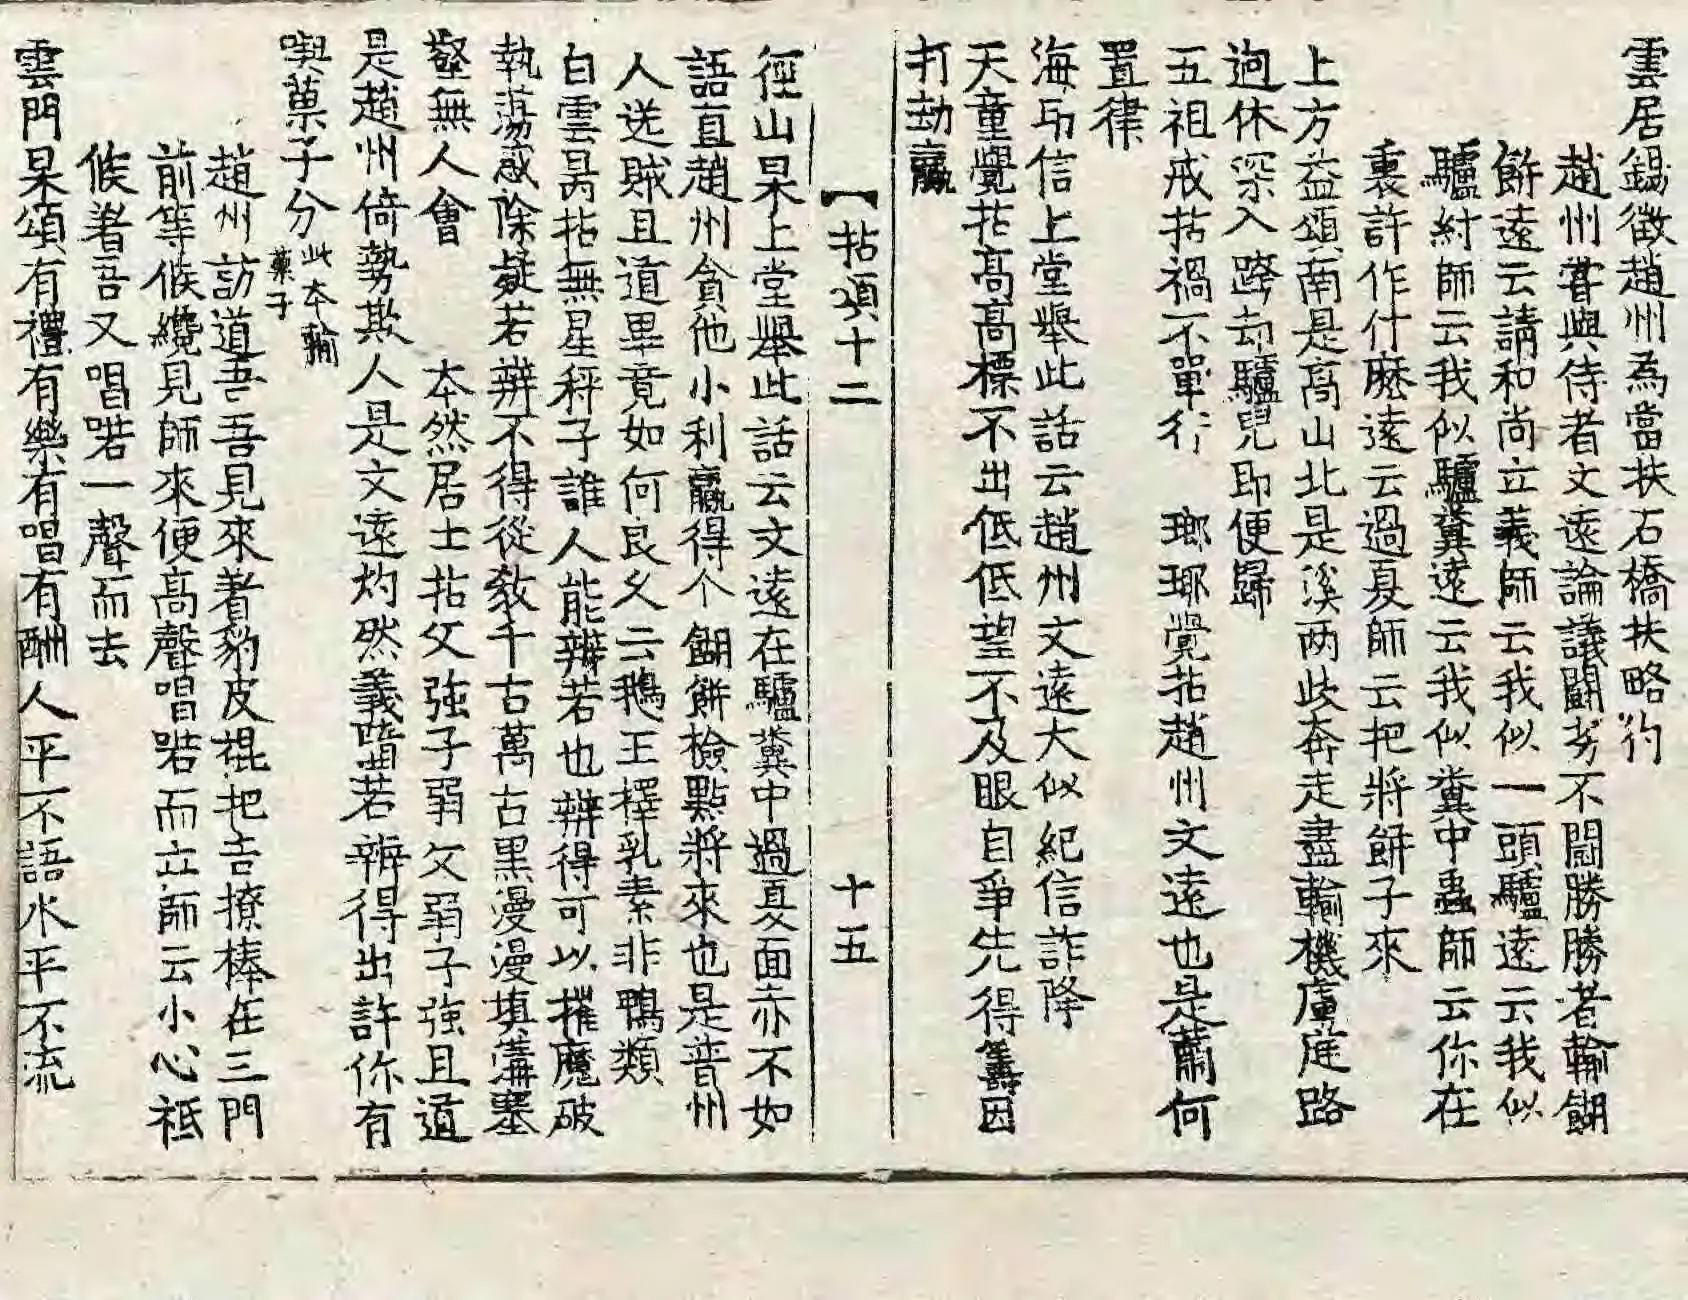 雲居錫徵趙州為當扶石橋扶略彴
趙州甞與侍者文遠論議鬪劣不鬪勝勝者輸餬
餅遠云請和尚立義師云我似一頭驢遠云我似
驢紂師云我似驢糞遠云我似糞中蟲師云你在
裏許作什麽遠云過夏師云把將餅子來
上方益頌南是高山北是溪两此奔走盡輸機廬庭路
逈休深入蹉却驢兒即便歸
五祖戒拈禍不單行 瑯瑘覺拈趙州文遠也是蕭何
置律
海印信上堂舉此話云趙州文遠大似紀信詐降
天童覺拈高高標不出低低望不及眼自爭先得籌因
打劫贏
【拈頌十二 十五
徑山杲上堂舉此話云文遠在驢糞中過夏面赤不如
語直趙州貪他小利贏得个餬餅檢點將來也是普州
人送賊且道畢竟如何良久云鵝王擇乳素非鴨類
白雲昺拈無星秤子誰人能辨若也辨得可以摧魔破
執蕩惑除疑若辨不得從教千古萬古黑漫漫填溝塞
壑無人會 本然居士拈父強子弱父弱子強且道
是趙州倚勢欺人是文遠灼然義墮若辨得出許你有
喫菓子分此本輸菓子
趙州訪道吾吾見來著豹皮裩把吉撩棒在三門
前等候纔見師來便高聲唱喏而立師云小心祗
候著吾又唱喏一聲而去
雲門杲頌有禮有樂有唱有酬人平不語水平不流